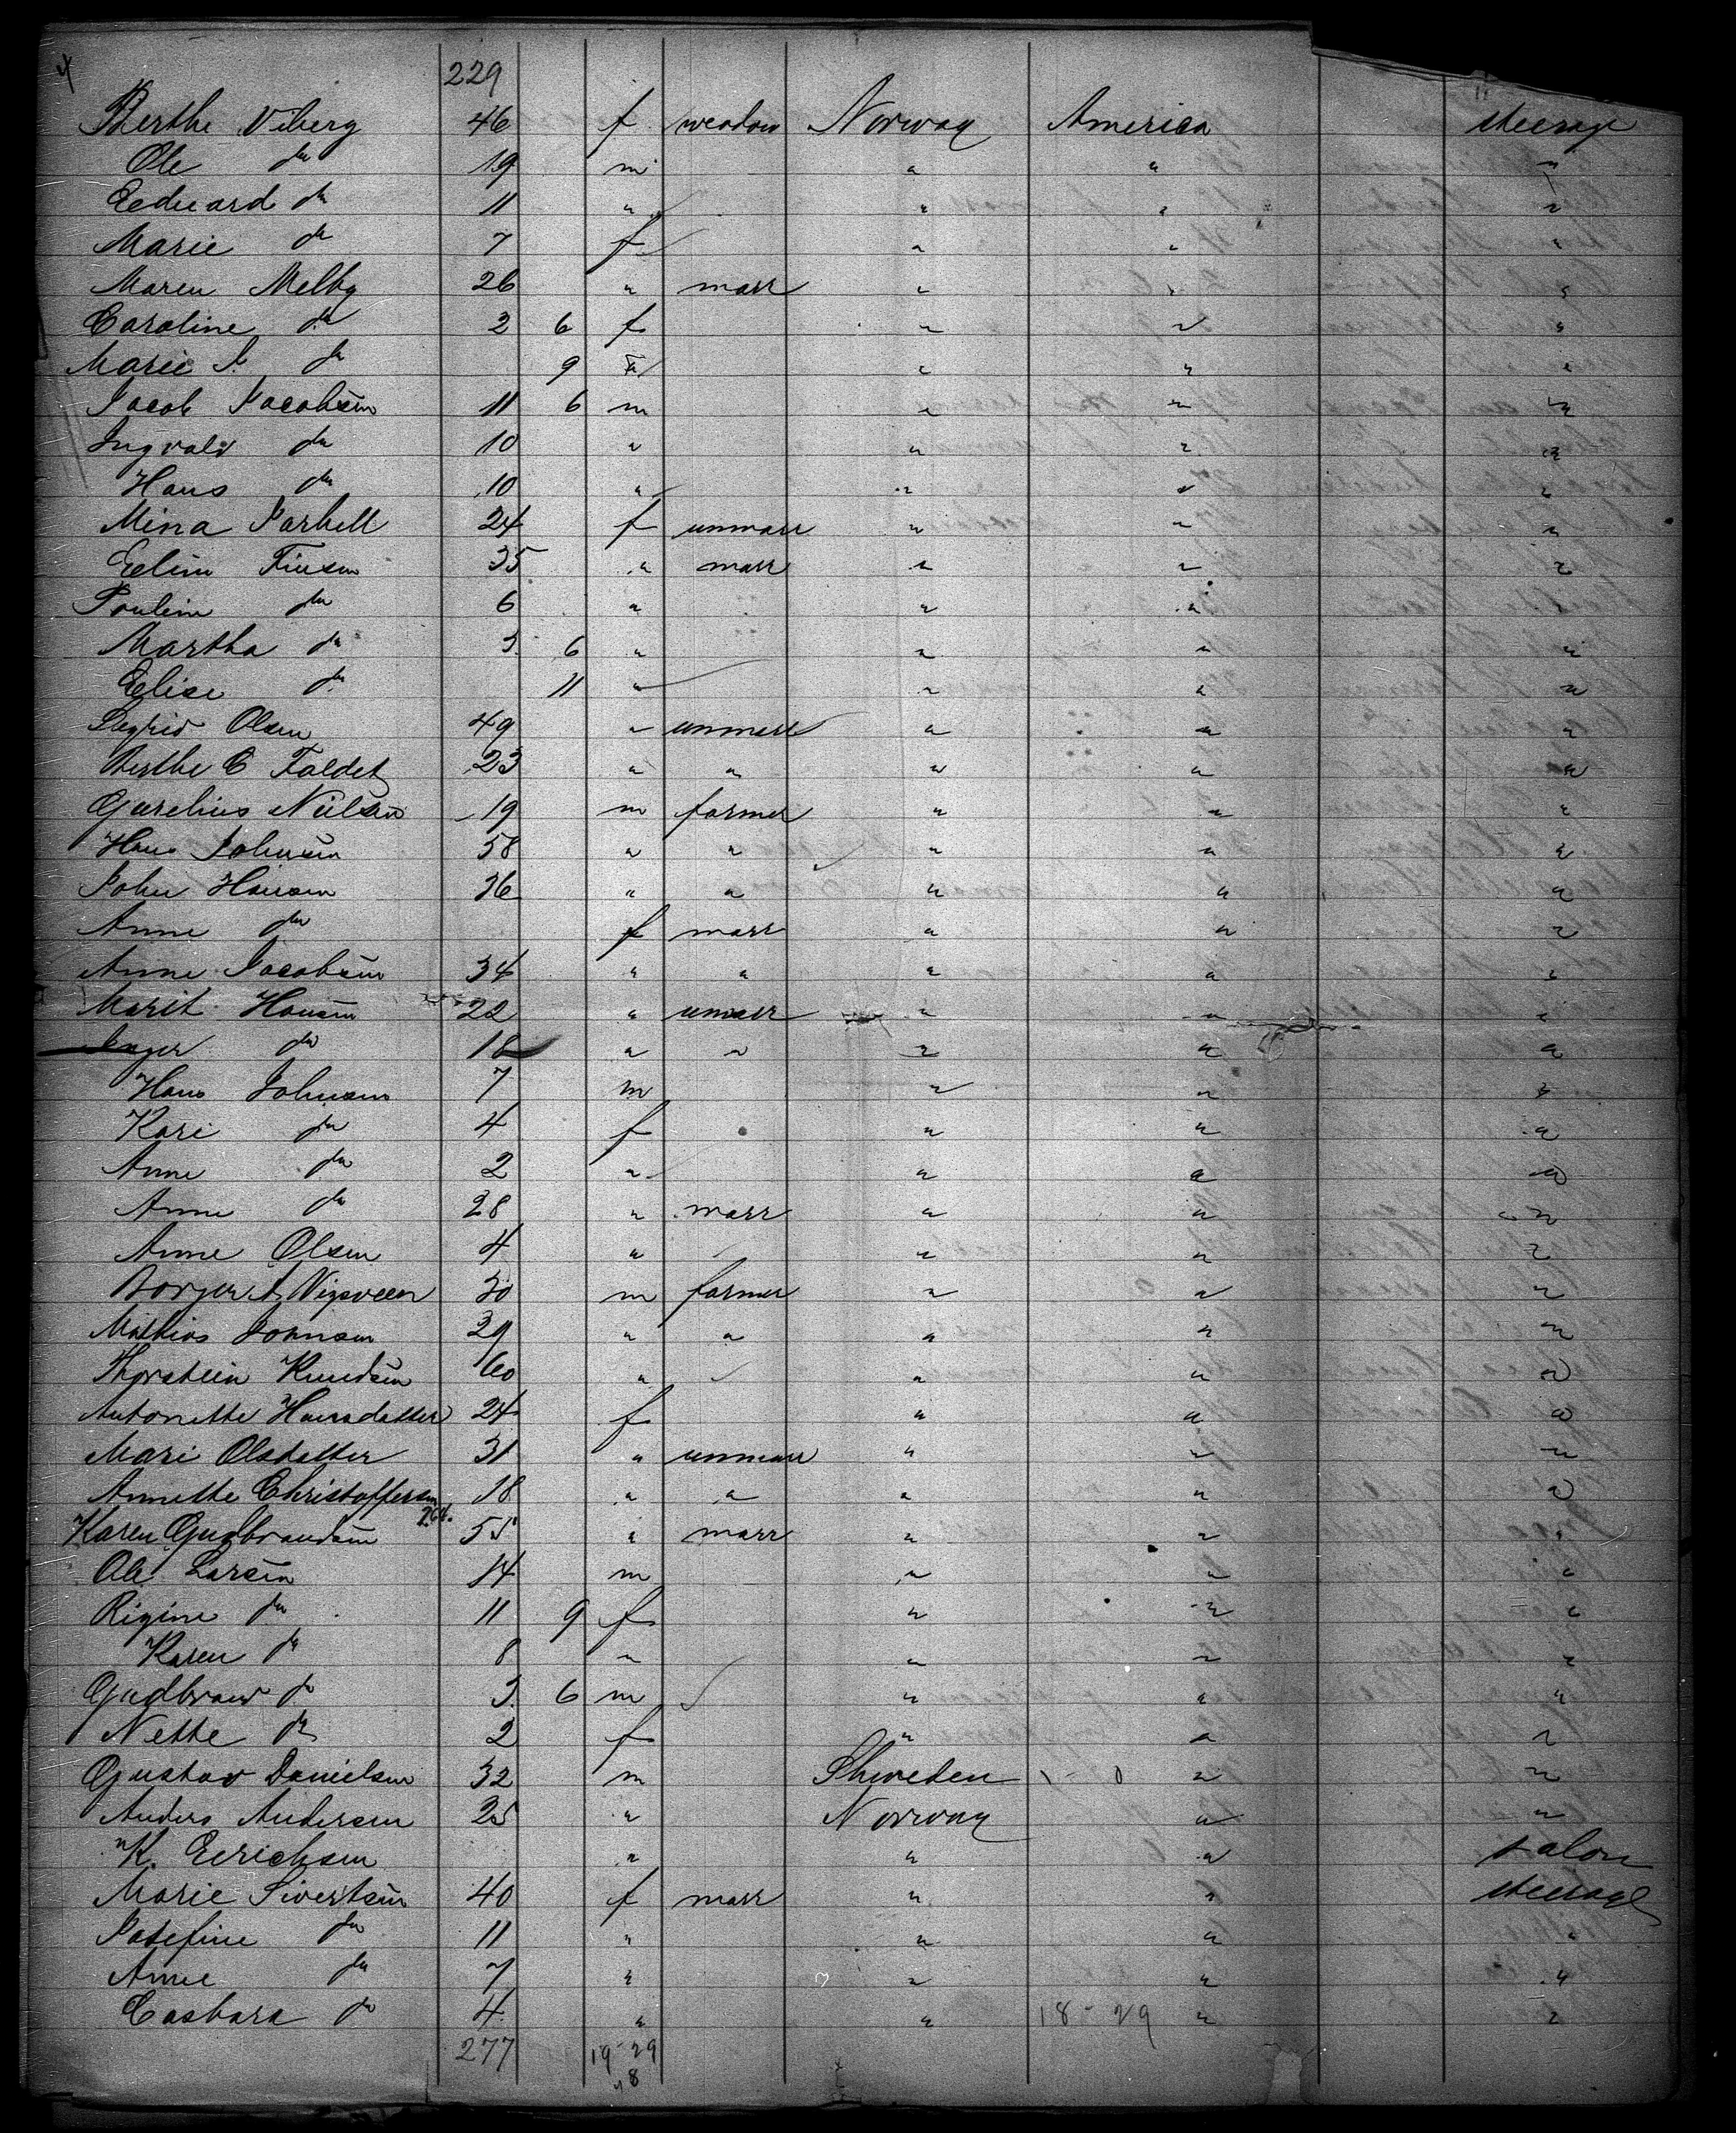 229
Berthe Viberg 46 f weadow Norway America steerage
Ole do 19 m " " "
Eeduard do 11 " " " "
Marie do 7 f " " "
Maren Melby 26 " marr " " "
Caroline do 2 6 f " " "
Marie do 9 " " " "
Jacob Jacobsen 11 6 m " " "
Ingvald do 10 " " " "
Hans do 10 " " " "
Mina 24 f unmarr " " "
Eeline 35 " marr " " "
Pouline do 6 " " " "
Martha do 3 6 " " " "
Eelise do 11 " " " "
Olsen 49 " unmarr " " "
Berthe C Foldet 23 " " " " "
Nielsen 19 m farmer " " "
Hans Johnsen 58 " " " " "
John Hansen 36 " " " " "
Anne do f marr " " "
Anne Jacobsen 34 " " " " "
Marit Hansen 22 " unmarr " " "
Inger do 18 " " " " "
Hans Johnsen 7 m " " "
Kari do 4 f " " "
Anne do 2 " " " "
Anne do 28 " marr " " "
Anne Olsen 4 " " " "
30 m farmer " " "
Mathias Johnsen 29 " " " " "
Thorstein Knudsen 60 " " " "
Antonette Hansdatter 24 f " " "
Mari Olsdatter 31 " unmarr " " "
Annette Christoffersen 18 " " " " "
Karen Gudbrandsen 55 " marr " " "
Ole Larsen 14 m " " "
Rigine do 11 9 f " " "
Karen do 8 " " " "
Gudbrand do 3 6 m " " "
Nette do 2 f " " "
Gustav Danielsen 32 m Shweden " "
Anders Andersen 25 " Norway " "
K. Eerichsen " " " salon
Marie Sivertsen 40 f marr " " steerage
Josefine do 11 " " " "
Anne do 7 " " " "
Casbara do 4 " " 18-29 " "
277 19-29